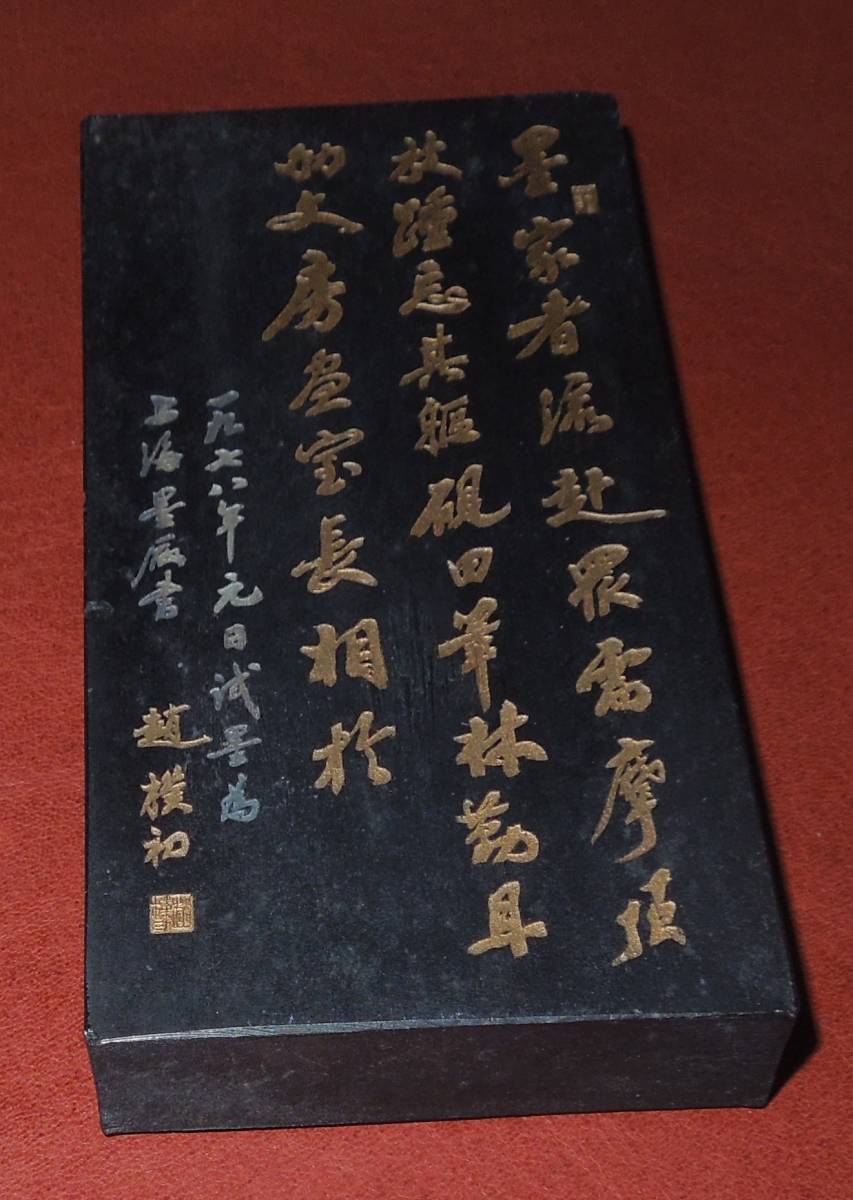 墨家者流赴眾需摩頂
放踵忘其軀硯田筆林勤且
劬文房畫室長相於
一九七八年元日試墨為
上海墨廠書 趙樸初